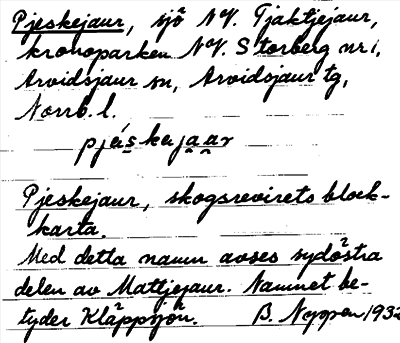 Pjeskejaur, sjö NV. Tjaktjejaur,
kronoparken NV. Storberg nr 1,
Arvidsjaur sn, Arvidsjaur tg,
Norrb. l.
pjás̱keja̭a̭r
Pjeskejaur, skogsrevirets block-
karta.
Med detta namn avses sydöstra
delen av Mattjejaur. Namnet be-
tyder Kläppsjön. B. Nyman 1932